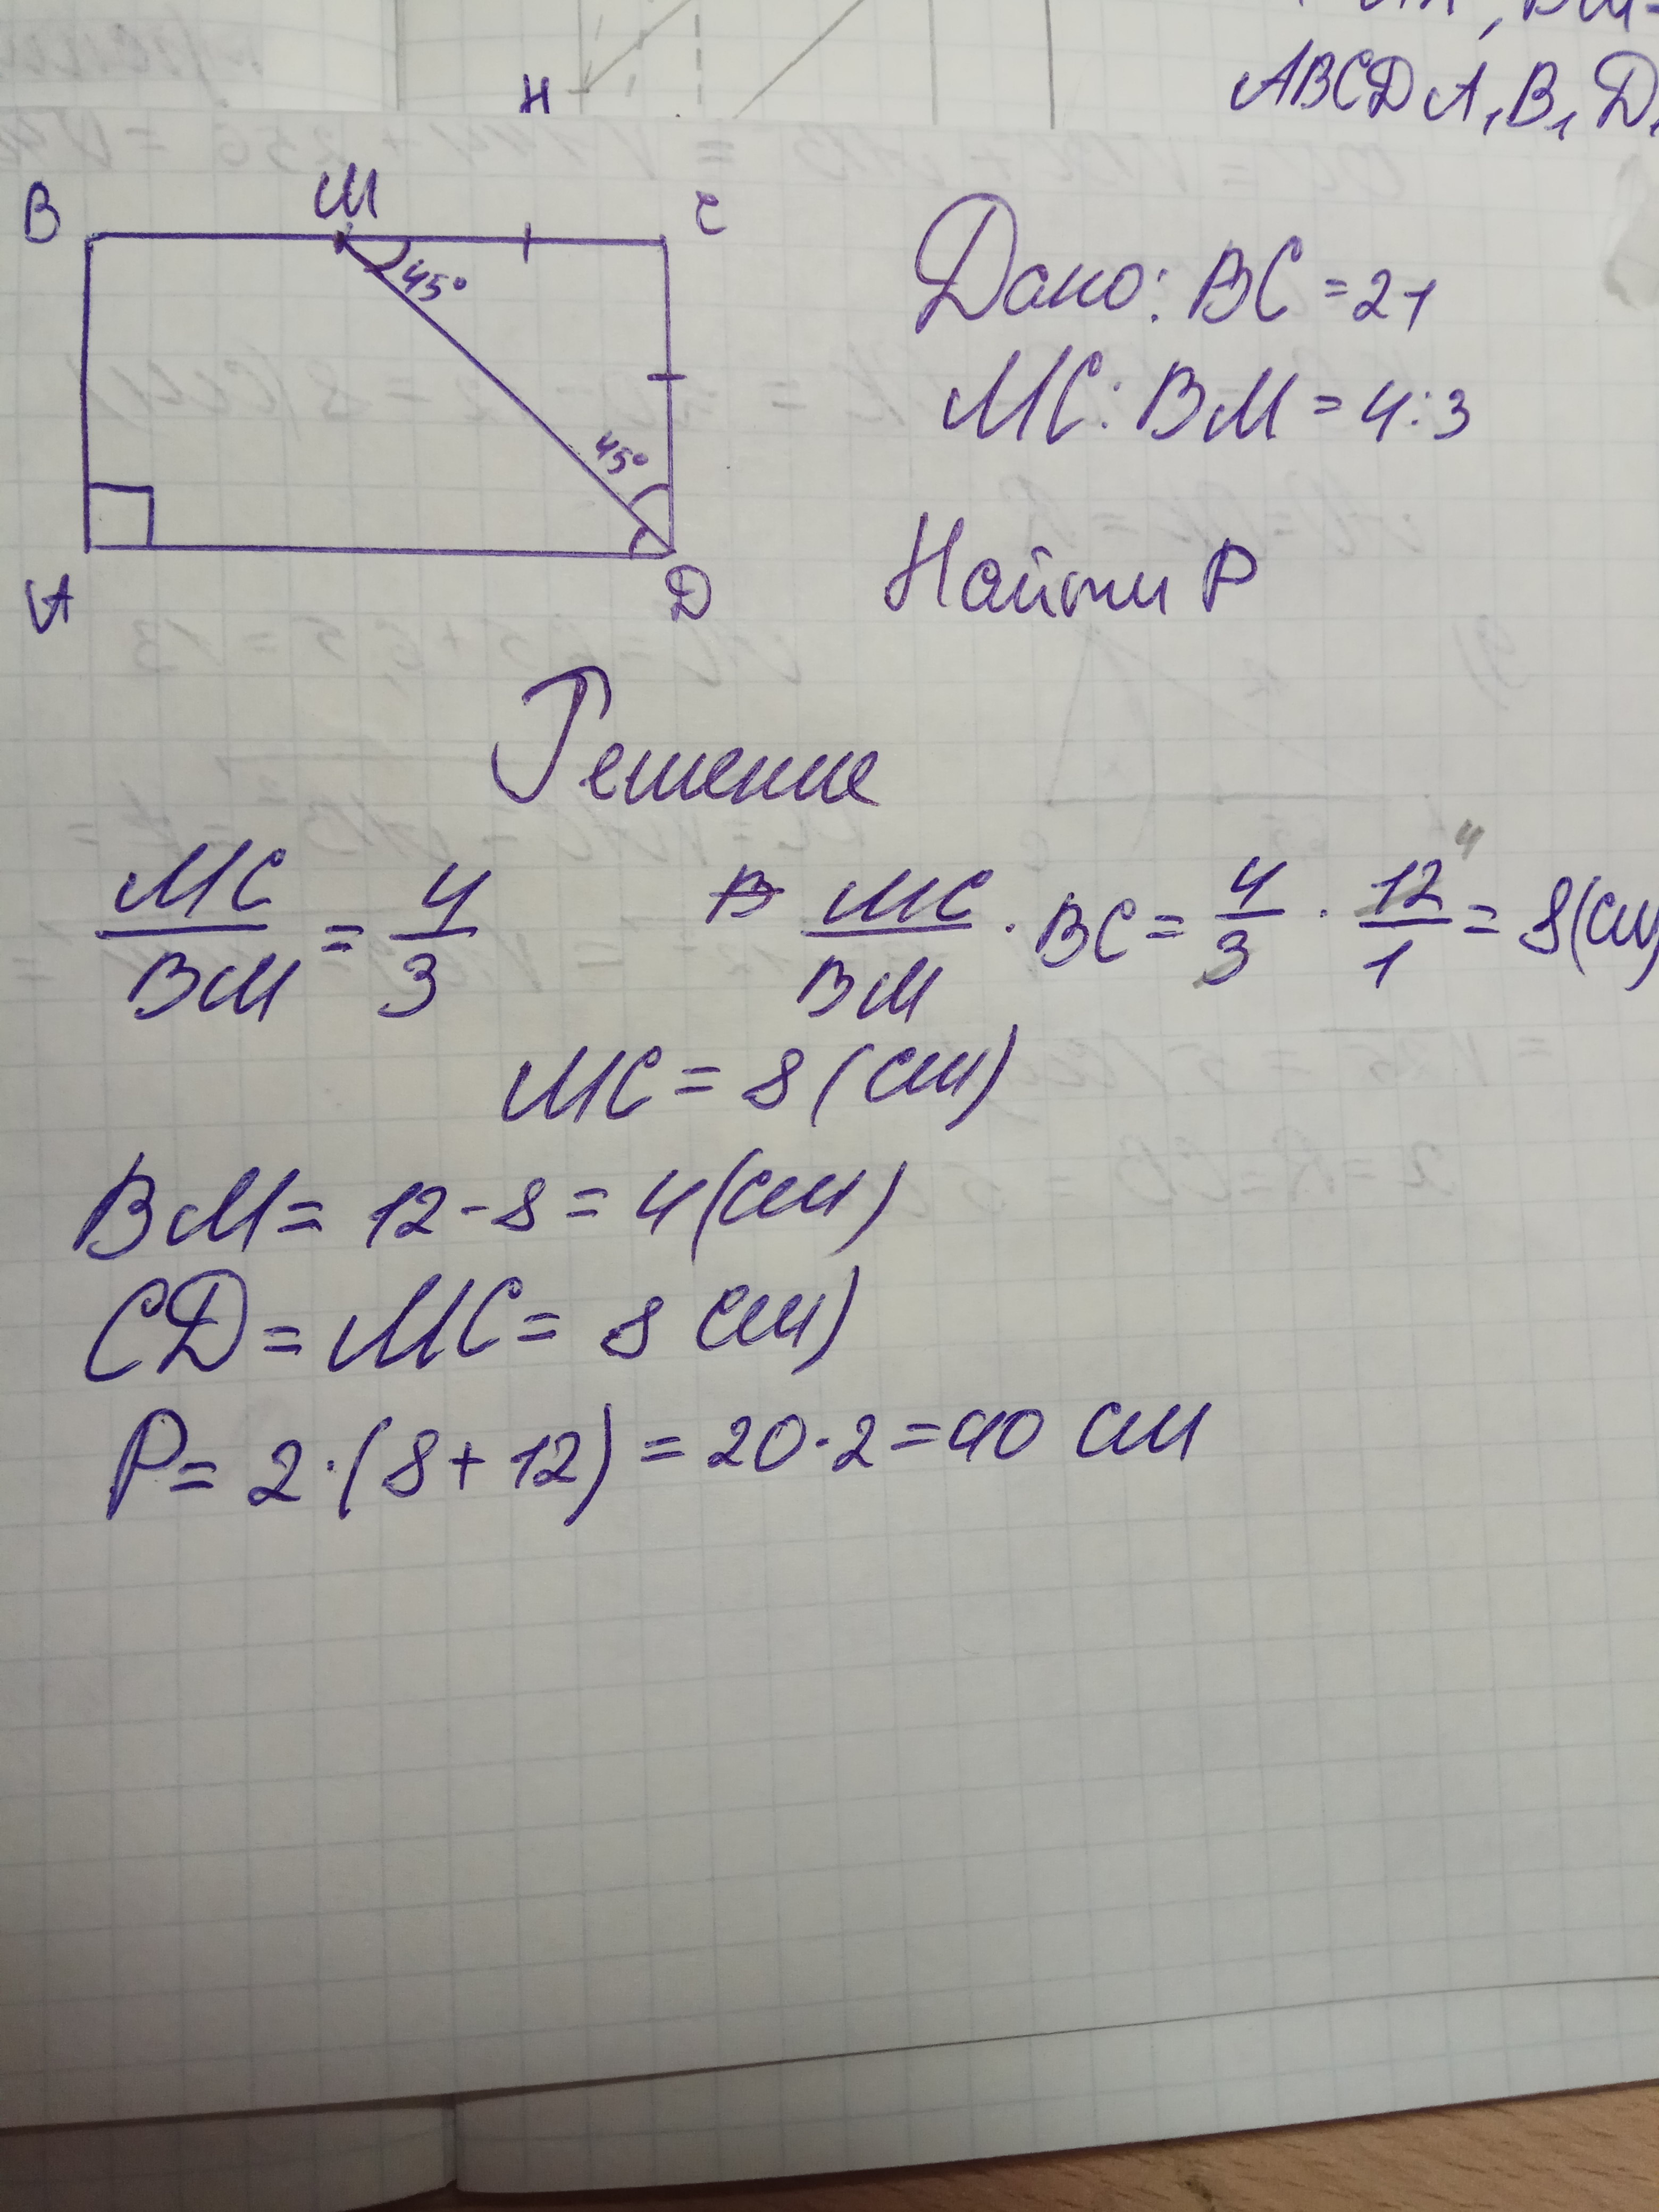 H
ABCDA₁B₁D₁
B M C
45°
45°
A D
Дано: BC = 21
MC : BM = 4:3
Найти P
Решение
MC/BM = 4/3 MC/BM · BC = 4/3 · 12/1 = 8(см)
4
MC = 8 (см)
BM = 12 - 8 = 4 (см)
CD = MC = 8 см)
P = 2·(8 + 12) = 20·2 = 40 см